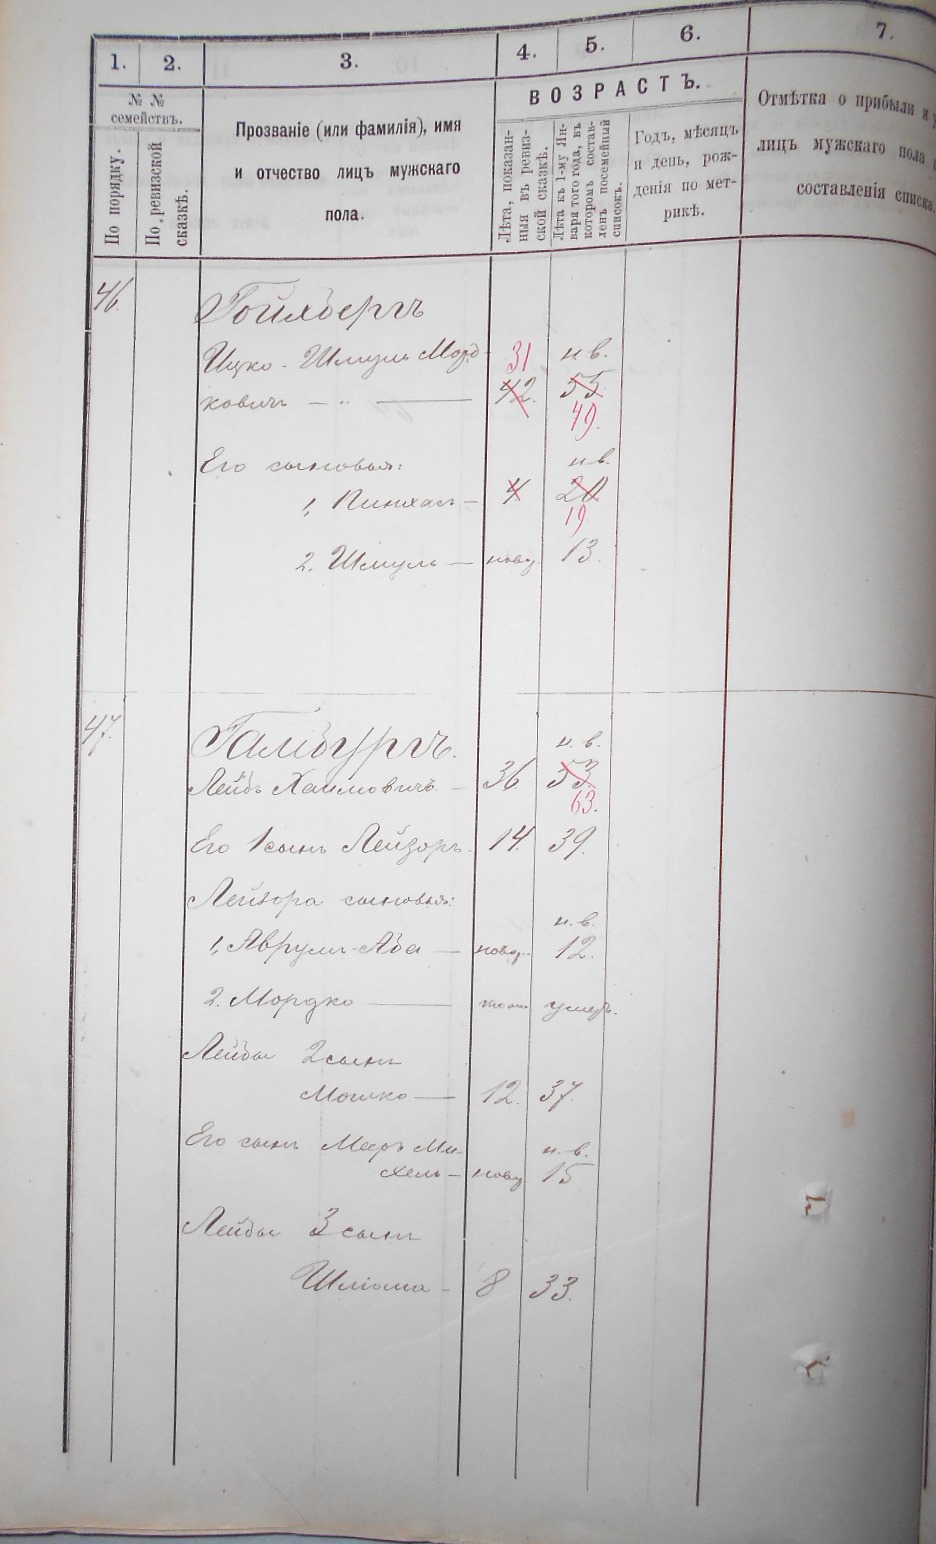 1. 2. 3. 4. 5. 6. 7.
№ № семействъ.
По порядку.
По ревизской сказкѣ.
Прозваніе (или фамилія), имя
и отчество лицъ мужскаго
пола.
ВОЗРАСТЪ.
Лѣта, показан-
ныя въ ревиз-
ской сказкѣ.
Лѣта къ 1-му Ян-
варя того года, въ
которомъ состав-
ленъ посемейный
списокъ.
Годъ, мѣсяцъ
и день, рож-
денія по мет-
рикѣ.
Отмѣтка о прибыли и
лицъ мужскаго пола
составленія списка.
46.
Гойхбергъ
Ицко - Шмуль Морд- 31 н в.
ковичъ — „ — 42. 55.
49.
Его сыновья: н в.
1, Пинхасъ — 4 20
19
2. Шмуль — новор 13.
47.
Гамбургъ. н. в.
Лейбъ Хаимовичъ — 36 53.
63.
Его 1 сынъ Лейзоръ. 14. 39.
Лейзора сыновья: н. в.
1, Аврумъ-Аба — новор. 12.
2. Мордко — умеръ.
Лейбы 2 сынъ
Мошко — 12. 37.
Его сынъ Мееръ Ми- н. в.
хель — новор 15
Лейбы 3 сынъ
Шліома - 8 33.